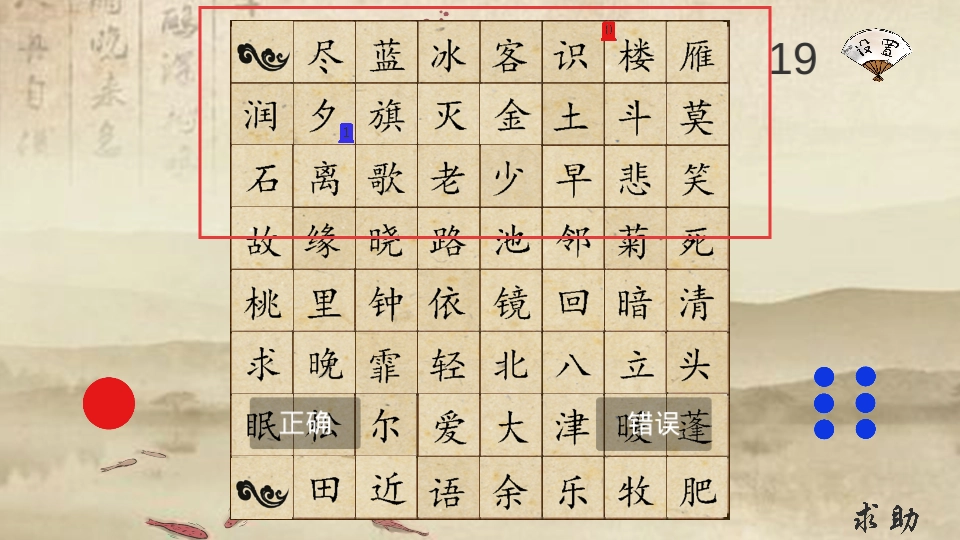 尽蓝冰客识楼雁
润夕旗灭金土斗莫
石离歌老少早悲笑
故缘晓路池邻菊死
桃里钟依镜回暗清
求晚霏轻北八立头
眠松尔爱大津暖蓬
田近语余乐牧肥
正确
错误
19
设置
求助
1